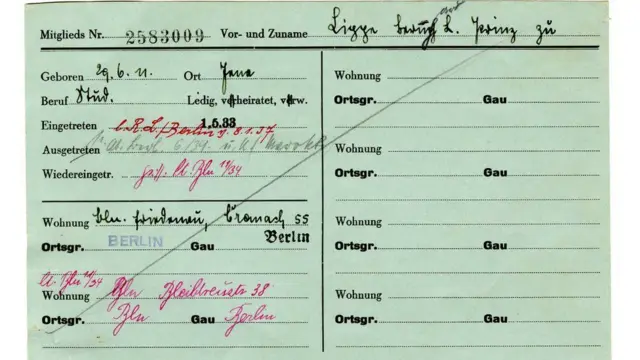 Mitglieds Nr. 2583009 Vor- und Zuname Lippe Bernhard L. Prinz zu
Geboren 29.6.11. Ort Jena
Beruf Stud. Ledig, verheiratet, verw.
Eingetreten 1.5.33
Ausgetreten
Wiedereingetr. lt. Bln 10/34
Wohnung Bln. Friedenau, Cranach 55
Ortsgr. BERLIN Gau Berlin
lt. Bln 10/34
Wohnung Bln Bleibtreustr 38
Ortsgr. Bln Gau Berlin
Wohnung
Ortsgr. Gau
Wohnung
Ortsgr. Gau
Wohnung
Ortsgr. Gau
Wohnung
Ortsgr. Gau